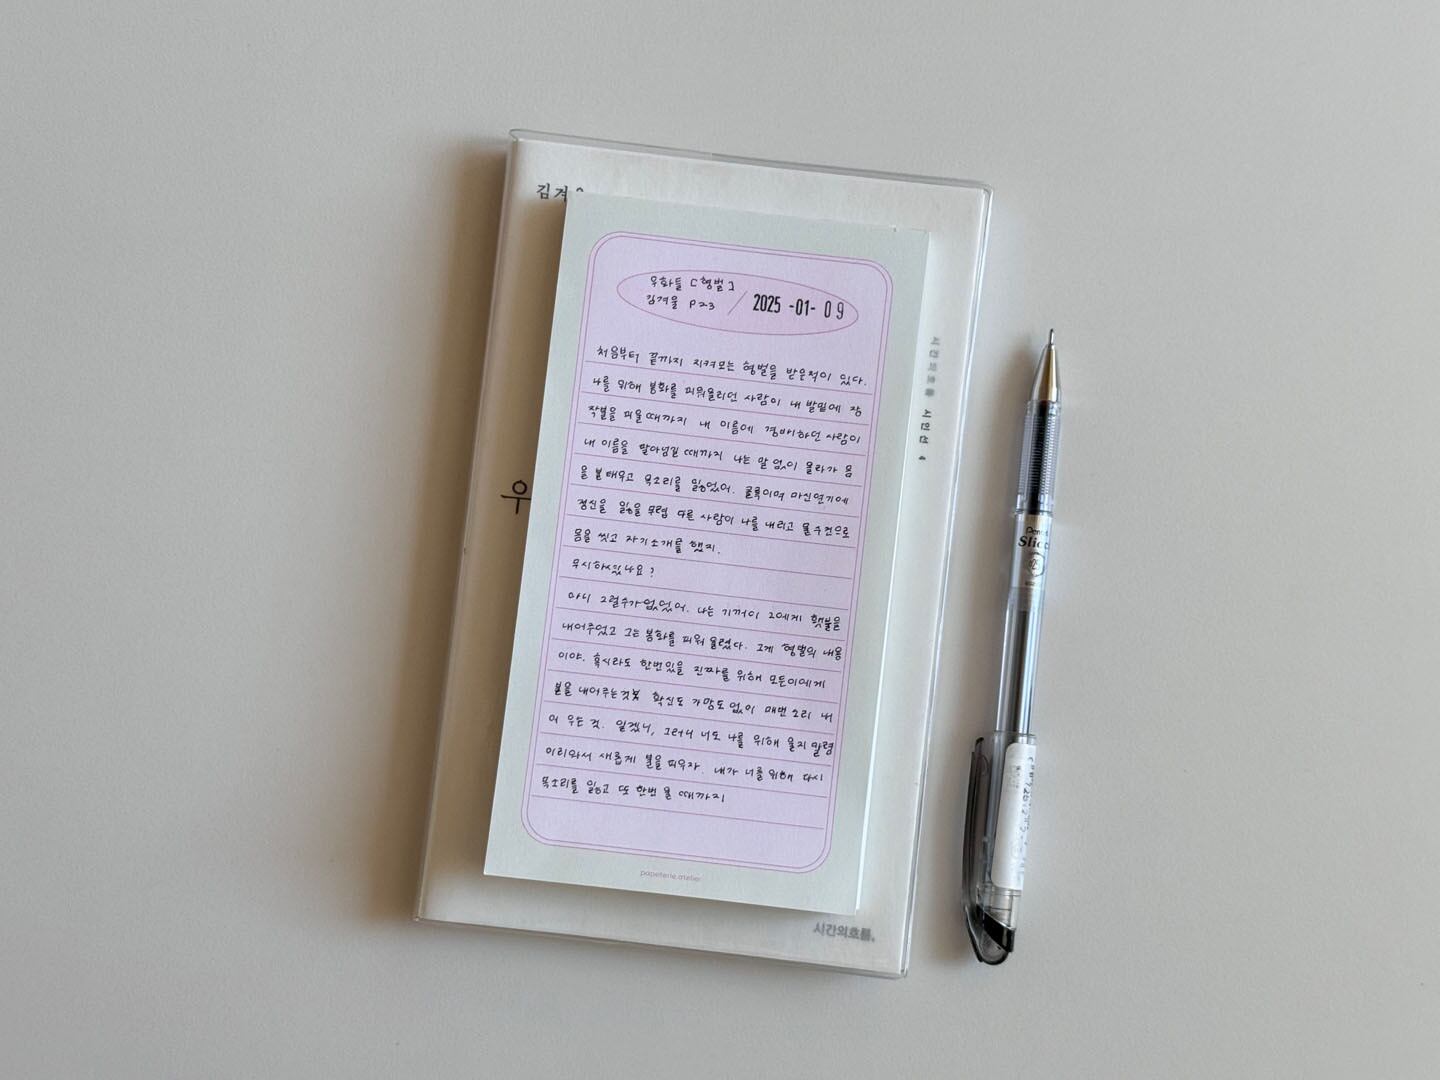 김겨
우화들 [형벌]
김겨울 P23 / 2025 -01- 09
처음부터 끝까지 지켜보는 형벌을 받은적이 있다.
나를 위해 봉화를 피워올리던 사람이 내 발밑에 장
작불을 피울때까지 내 이름에 경배하던 사람이
내 이름을 팔아넘길 때까지 나는 말 없이 올라가 몸
을 불태우고 목소리를 잃었었어. 굴뚝이며 마신연기에
정신을 잃을 무렵 다른 사람이 나를 내리고 물수건으로
몸을 씻고 자기소개를 했지.
무시하셨나요?
아니 그럴수가없었어. 나는 기꺼이 그에게 횃불을
내어주었고 그는 봉화를 피워 올렸다. 그게 형벌의 내용
이야. 혹시라도 한번있을 진짜를 위해 모든이에게
불을 내어주는것 확신도 가망도 없이 매번 소리 내
어 우는 것. 알겠니, 그러니 너도 나를 위해 울지 말렴
이리와서 새롭게 불을 피우자. 내가 너를 위해 다시
목소리를 잃고 또 한번 울 때까지
papeterie.atelier
우
시간의흐름 시인선 4
시간의흐름.
Pentel
Slicci